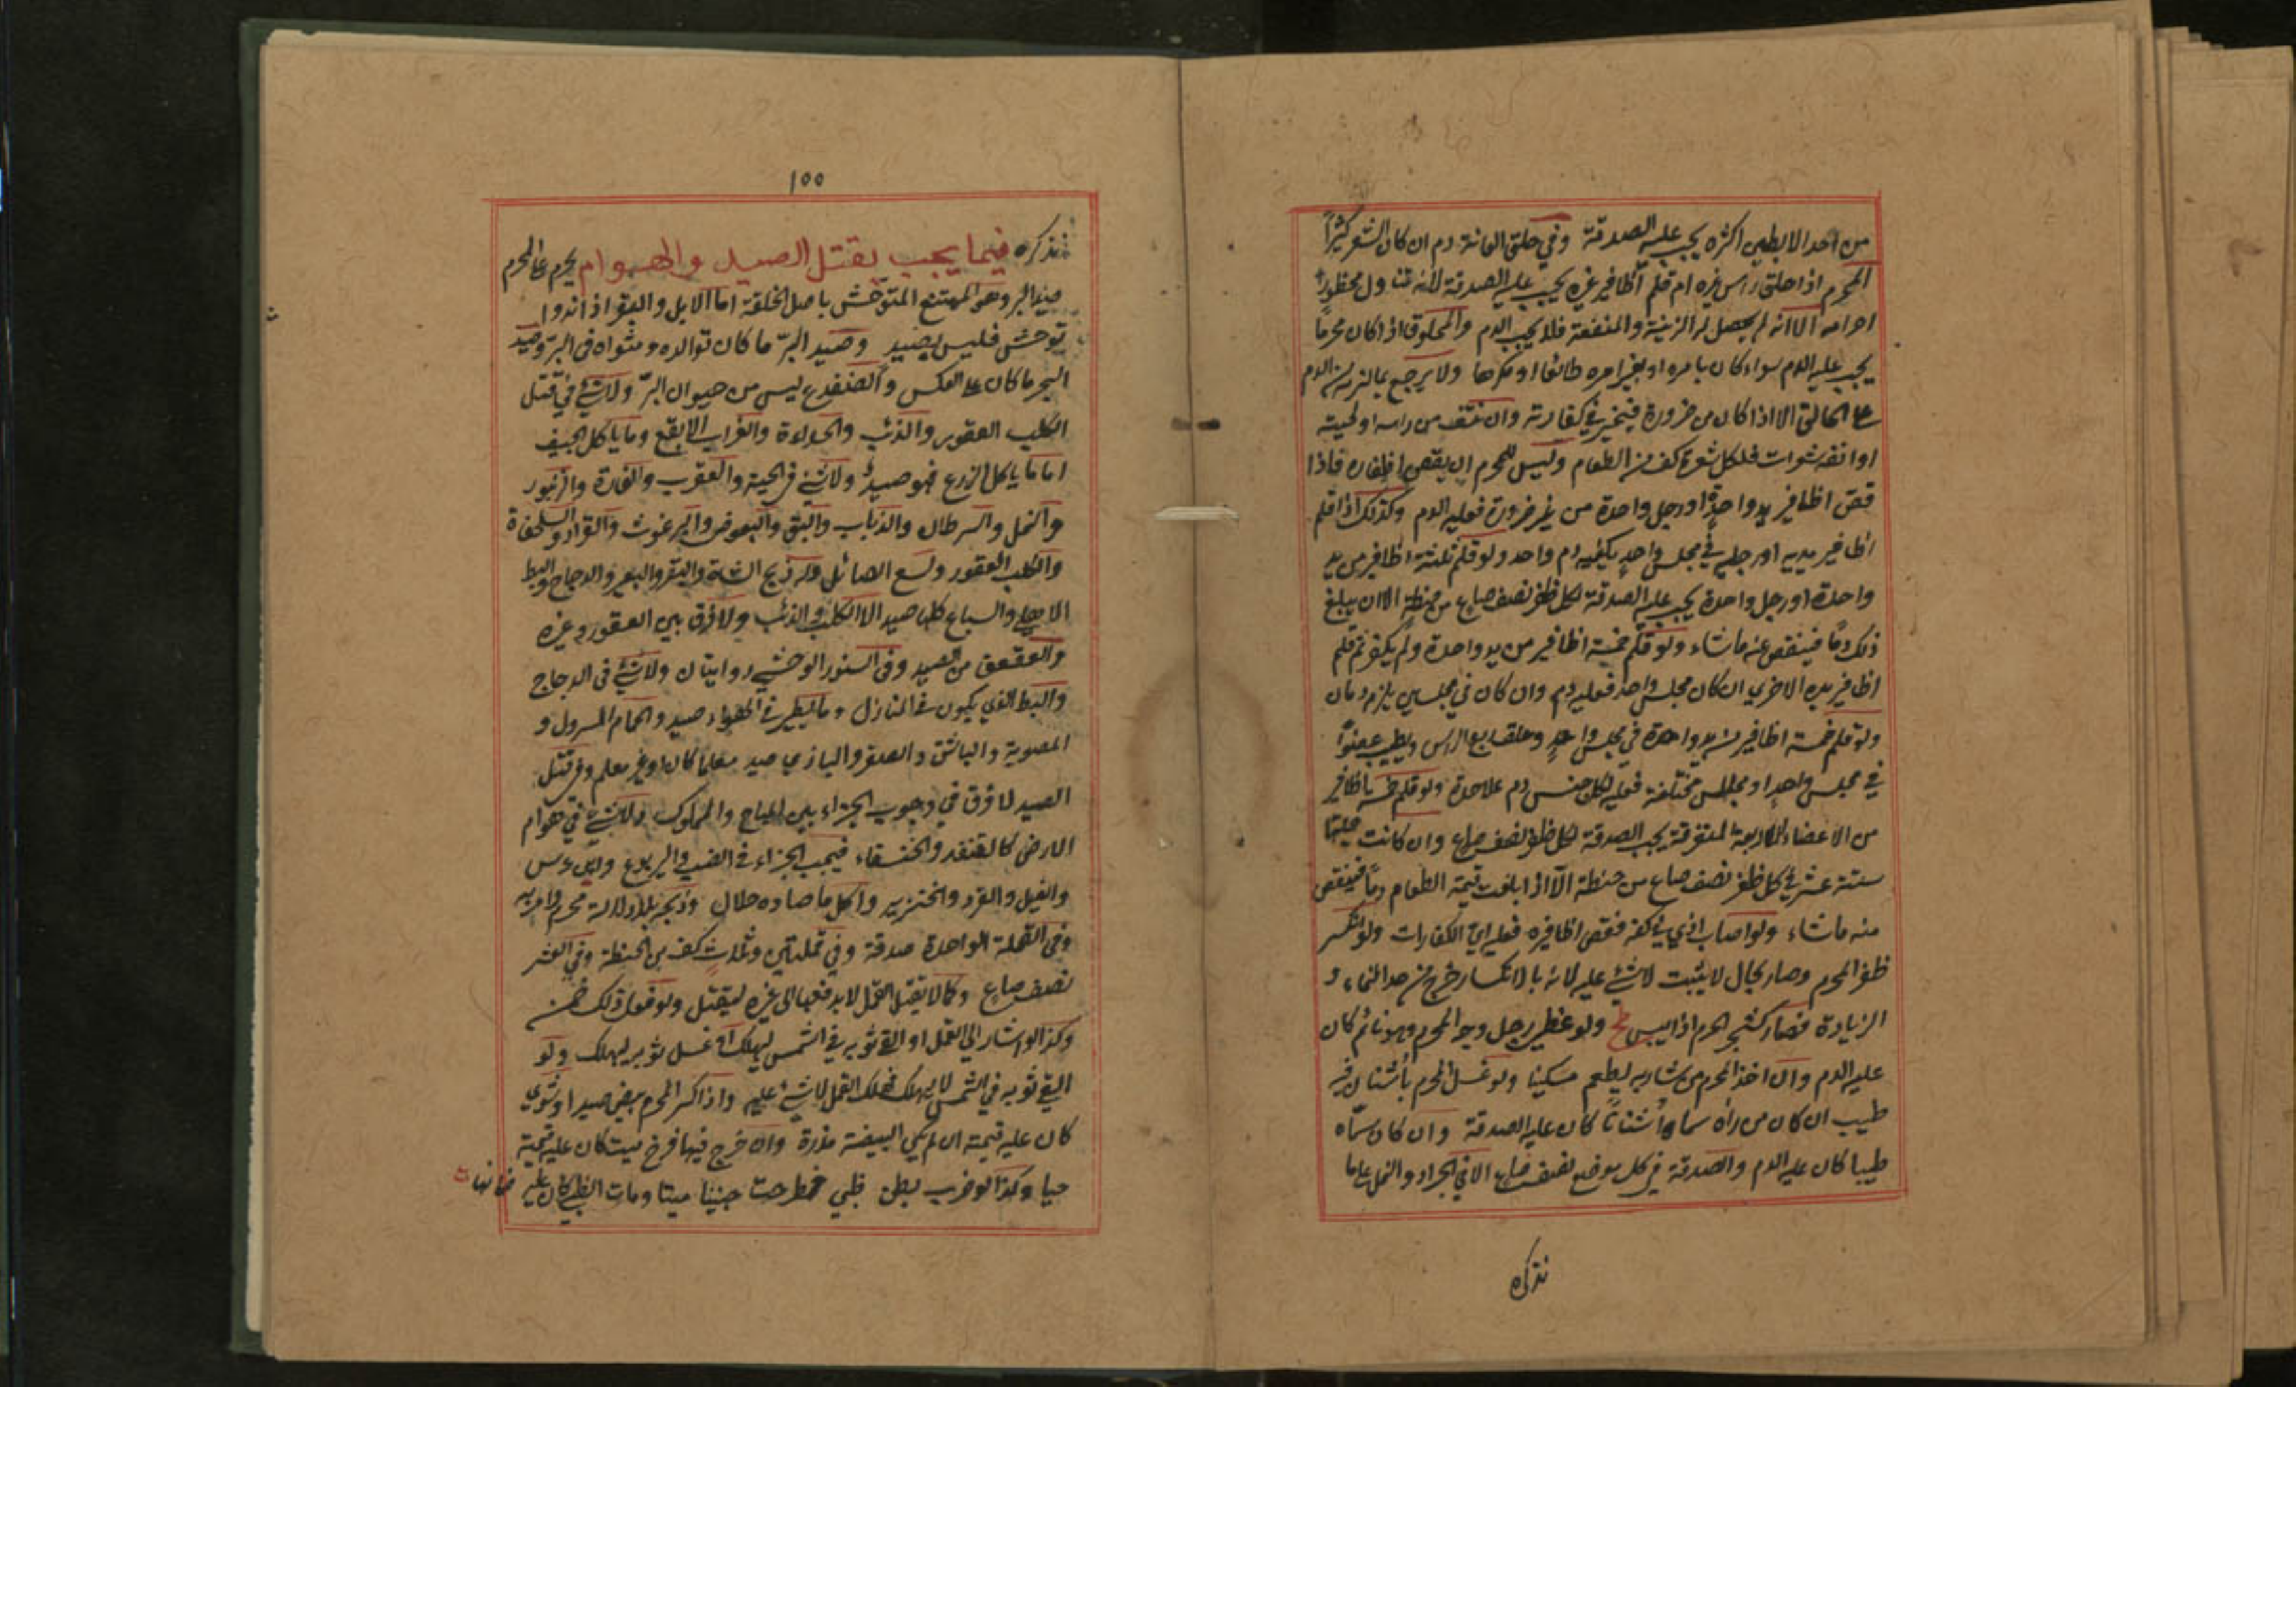 من احد الابطين اكثره يجب عليه الصدقة وفي حلق العانة دم ان كان الشعر كثيرًا
المحرم اذا حلق راس غيره ام قلم أظافير غيره يجب عليه الصدقة لأنه تناول محظور
احرامه الا انه لم يحصل له الزينة والمنفعة فلا يجب الدم والمحلوق اذا كان محرمًا
يجب عليه الدم سواء كان بامره او بغير امره طائعا او مكرها ولا يرجع بما لزمه من الدم
على الحالق الا اذا كان من ضرورة فيخير في كفارته وان نتف من راسه او لحيته
او انفه شعرات فلكل شعرة كف من الطعام وليس للمحرم ان يقص اظفاره فاذا
قص اظافير يد واحدةٍ او رجل واحدة من غير ضرورة فعليه الدم وكذلك اذا قلم
اظافير يديه او رجليه في مجلس واحدٍ يكفيه دم واحد ولو قلم ثلثة اظافير من يد
واحدة او رجل واحدة يجب عليه الصدقة لكل ظفر نصف صاع من حنطة الا ان يبلغ
ذلك دمًا فينقص عنه ما شاء ولو قلم خمسة اظافير من يد واحدة ولم يكفر ثم قلم
اظافير يده الاخرى ان كان مجلس واحد فعليه دم وان كان في مجلسين يلزمه دمان
ولو قلم خمسة اظافير من يد واحدة في مجلس واحدٍ وحلق ربع الراس وطيب عضوًا
في مجلس واحدٍ او مجالس مختلفة فعليه لكل جنس دم علاحدة ولو قلم خمسة اظافير
من الاعضاء الاربعة المتفرقة يجب الصدقة لكل ظفر نصف صاع وان كانت جملتها
ستة عشر في كل ظفر نصف صاع من حنطة الّا اذا بلغت قيمة الطعام دمًا فينقص
منه ما شاء ولو اصاب اذى في كفه فقص اظافيره فعليه اي الكفارات ولو انكسر
ظفر المحرم وصار بحال لا يثبت لا شئ عليه لانه بالانكسار خرج من حد النماء و
الزيادة فصار كشجر الحرم اذا يبس ولو غطى رجل وجه المحرم وهو نائم كان
عليه الدم وان اخذ المحرم من شاربه يطعم مسكينا ولو غسل المحرم بأشنان فيه
طيب ان كان من رآه سماه أشنانًا كان عليه الصدقة وان كان سمّاه
طيبا كان عليه الدم والصدقة في كل موضع نصف صاع الا في الجراد والنمل على ما
نذكره
١٥٥
نذكره فيما يجب بقتل الصيد والهوام يحرم على المحرم
صيد البر وهو الممتنع المتوحّش باصل الخلقة اما الابل والبقر اذا ندوا
توحش فليس بصيد وصيد البرّ ما كان توالده ومثواه في البرّ وصيد
البحر ما كان على العكس والضفدع ليس من حيوان البرّ ولا شئ في قتل
الكلب العقور والذئب والحداءة والغراب الابقع وما ياكل الجيف
اما ما ياكل الزرع فهو صيدٌ ولا شئ في الحية والعقرب والفارة والزنبور
والنمل والسرطان والذباب والبق والبعوض والبرغوث والقراد والسلحفاة
والكلب العقور ولسبع الصائل وله ذبح الشاة والبقر والبعير والدجاج والبط
الاهلي والسباع كلها صيد الا الكلب والذئب ولا فرق بين العقور وغيره
والعقعق من الصيد وفي السنور الوحشي روايتان ولا شئ في الدجاج
والبط الذي يكون في المنازل وما يطير في الهواء صيد والحمام المسرول و
المصوية والباشق والصقر والبازي صيد معلما كان او غير معلم وفي قتل
الصيد لا فرق في وجوب الجزاء بين المباح والمملوك ولا شئ في هوام
الارض كالقنفد والخنفساء فيجب الجزاء في الضب واليربوع وابن عرس
والفيل والقرد والخنزير واكل ما صاده حلال وذبحه بلا دلالة محرم وامر به
وفي القملة الواحدة صدقة وفي قملتين وثلاث كف من الحنطة وفي العشر
نصف صاع وكما لا يقتل القمل لا يدفعها الى غيره ليقتل ولو فعل ذلك ضمن
وكذا لو اشار الى القمل او القى ثوبه في الشمس ليهلك او غسل ثوبه ليهلك ولو
القى ثوبه في الشمس لا ليهلك فهلك القمل لا شئ عليه واذا كسر المحرم بيض صيد او شوى
كان عليه قيمته ان لم يكن البيضة مذرة وان خرج فيها فرخ ميت كان عليه قيمته
حيا وكذا لو ضرب بطن ظبي فطرحت جنينا ميتا ومات الظبي كان عليه ضمانهما